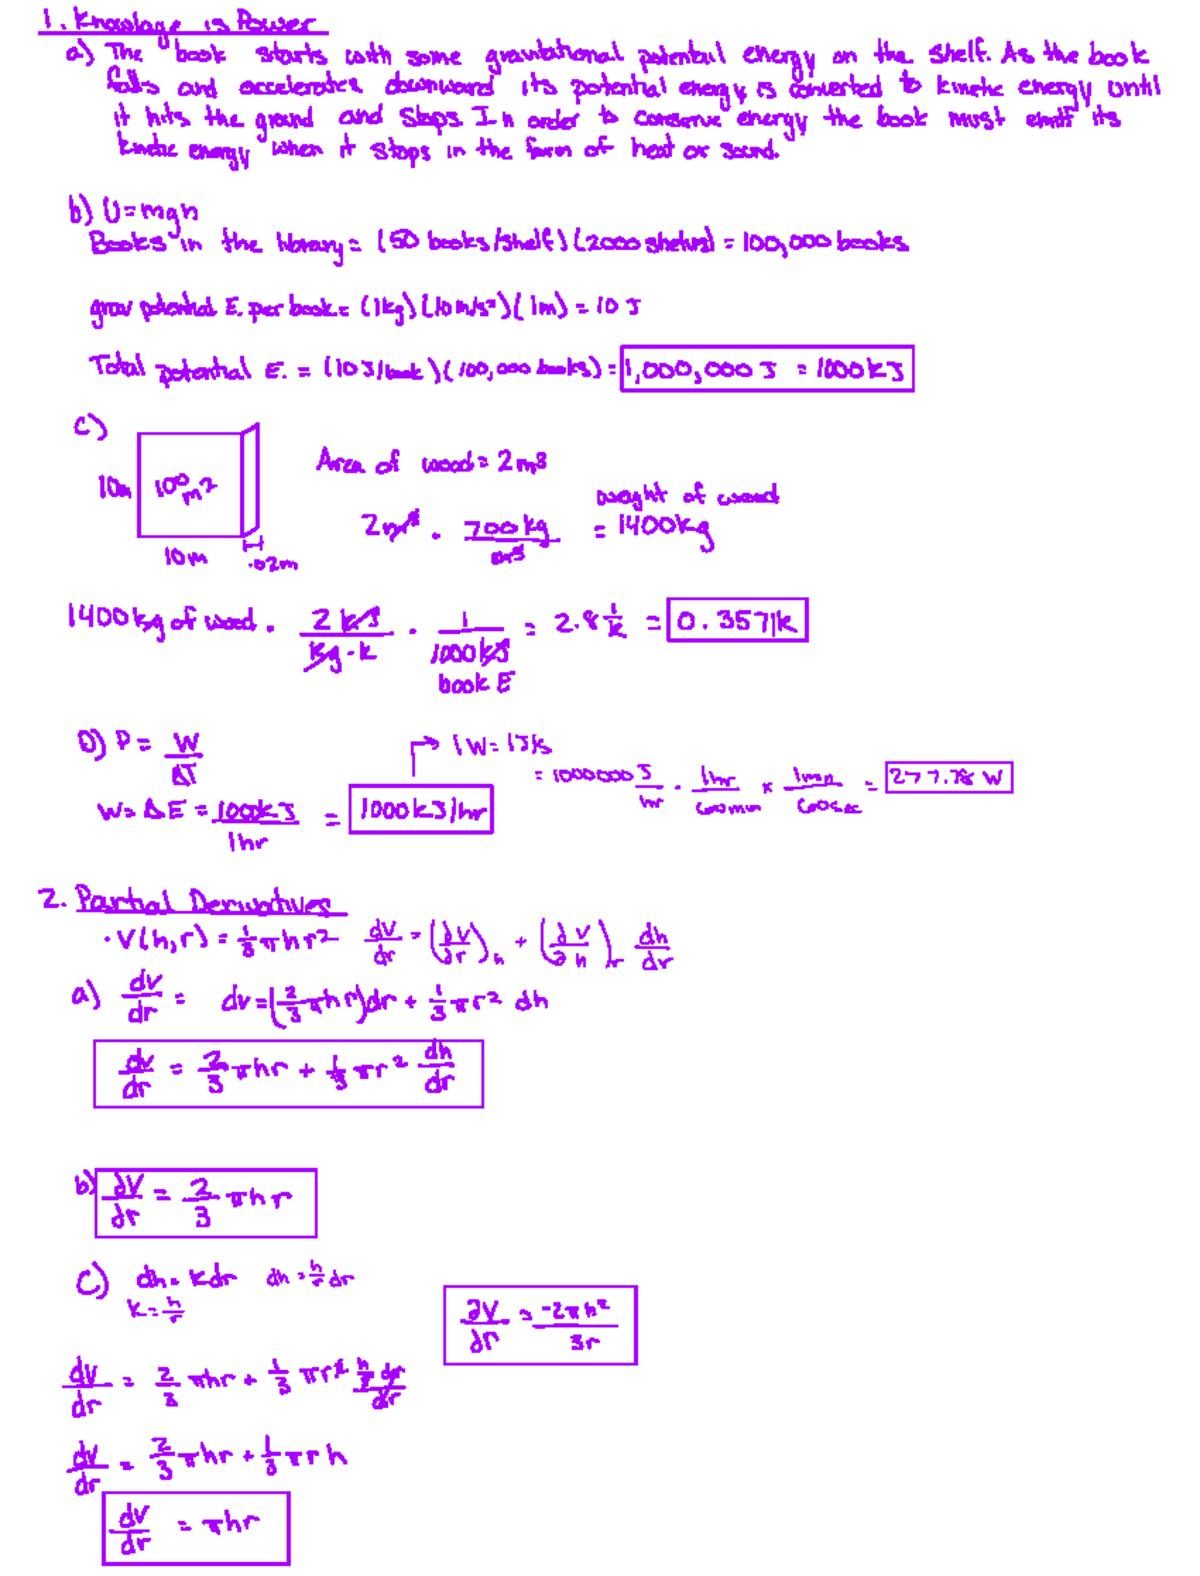 1. Knowlage is Power
a) The book starts with some gravitational potentail energy on the shelf. As the book
falls and accelerates downward its potential energy is converted to kinetic energy until
it hits the ground and stops. In order to conserve energy the book must emitt its
kinetic energy when it stops in the form of heat or sound.
b) U=mgh
Books in the library = (50 books/shelf)(2000 shelves) = 100,000 books
grav potential E. per book = (1kg)(10m/s²)(1m) = 10 J
Total potential E. = (10J/book)(100,000 books) = 1,000,000 J = 1000kJ
c)
10m 100 m² Area of wood = 2m³
2m³ · 700kg/m³ = 1400kg weight of wood
10m .02m
1400kg of wood · 2 kJ/kg·k · 1/1000kJ book E = 2.8 1/k = 0.3571k
D) P = W/ΔT → 1W = 1J/s
= 1000000 J/hr · 1hr/60min × 1min/60sec = 277.78 W
W = ΔE = 100kJ/1hr = 1000kJ/hr
2. Partial Derivatives
· V(h,r) = 1/3 πhr² dV/dr = (∂V/∂r)h + (∂V/∂h)r dh/dr
a) dv/dr = dv = (2/3 πhr)dr + 1/3 πr² dh
dv/dr = 2/3 πhr + 1/3 πr² dh/dr
b) ∂V/∂r = 2/3 πhr
c) dh = kdr dh = h/r dr
k = h/r
∂V/∂r = -2πh²/3r
dV/dr = 2/3 πhr + 1/3 πr² h/r dr/dr
dV/dr = 2/3 πhr + 1/3 πrh
dV/dr = πhr